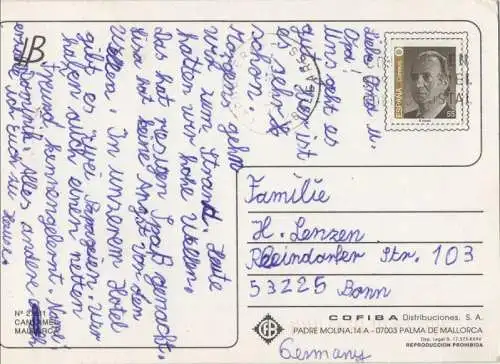 Liebe Oma u.
Opa!
Uns geht es
gut. Hier ist
es sehr
schön.
Morgens gehen
wir zum Strand. Heute
hatten wir hohe Wellen.
das hat riesigen Spaß gemacht.
hat keine Angst vor den
Wellen. In unserem Hotel
gibt es Wir
haben auch einen netten
Freund kennengelernt.
Dominik. Alles andere
ich Euch zu
Hause.
1B
ESPAÑA
Correos
55
Familie
H. Lenzen
Rheindorfer Str. 103
53225 Bonn
Germany
Nº
CAN
MALLORCA
COFIBA Distribuciones, S. A.
PADRE MOLINA, 14 A - 07003 PALMA DE MALLORCA
REPRODUCCION PROHIBIDA